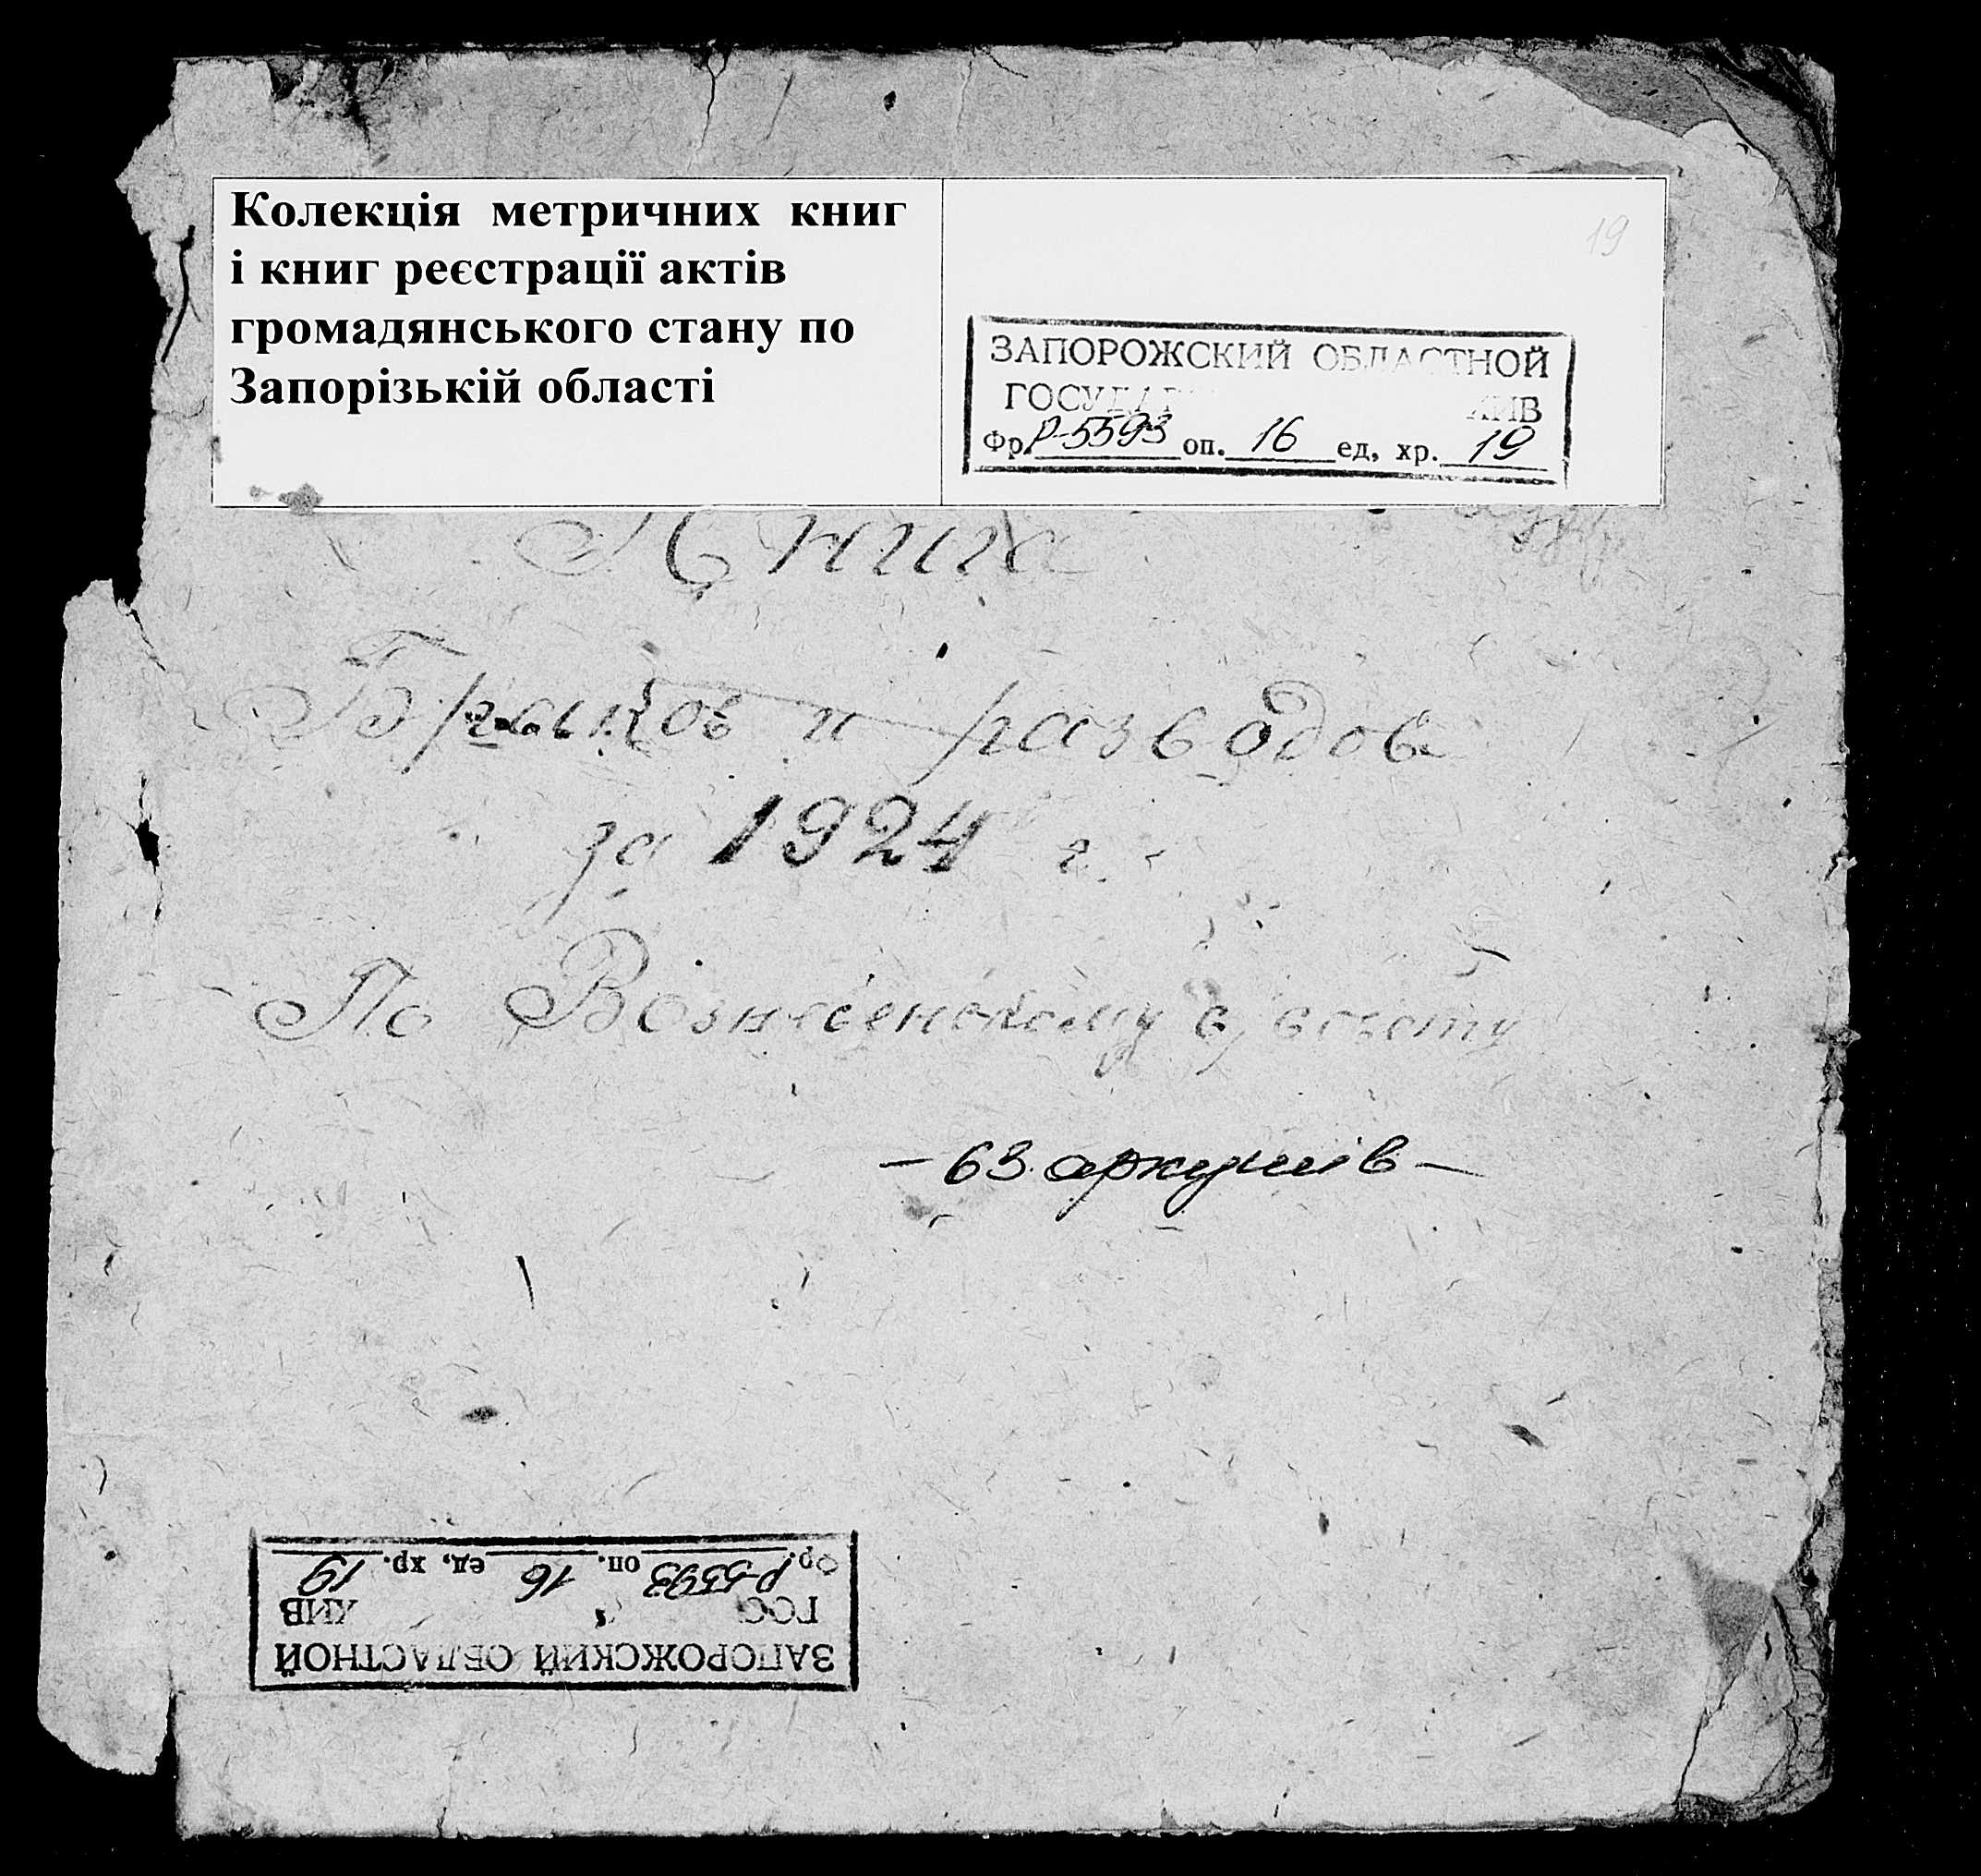 Колекція метричних книг
і книг реєстрації актів
громадянського стану по
Запорізькій області
19
ЗАПОРОЖСКИЙ ОБЛАСТНОЙ
ГОСУДАР ХИВ
Фр. Р-5593 оп. 16 ед, хр. 19
Книга
Браков и разводов
за 1924 г.
По Вознесенскому с/совету
- 63 аркушів -
ЗАПОРОЖСКИЙ ОБЛАСТНОЙ
ГОС ХИВ
Фр. Р-5593 оп. 16 ед, хр. 19